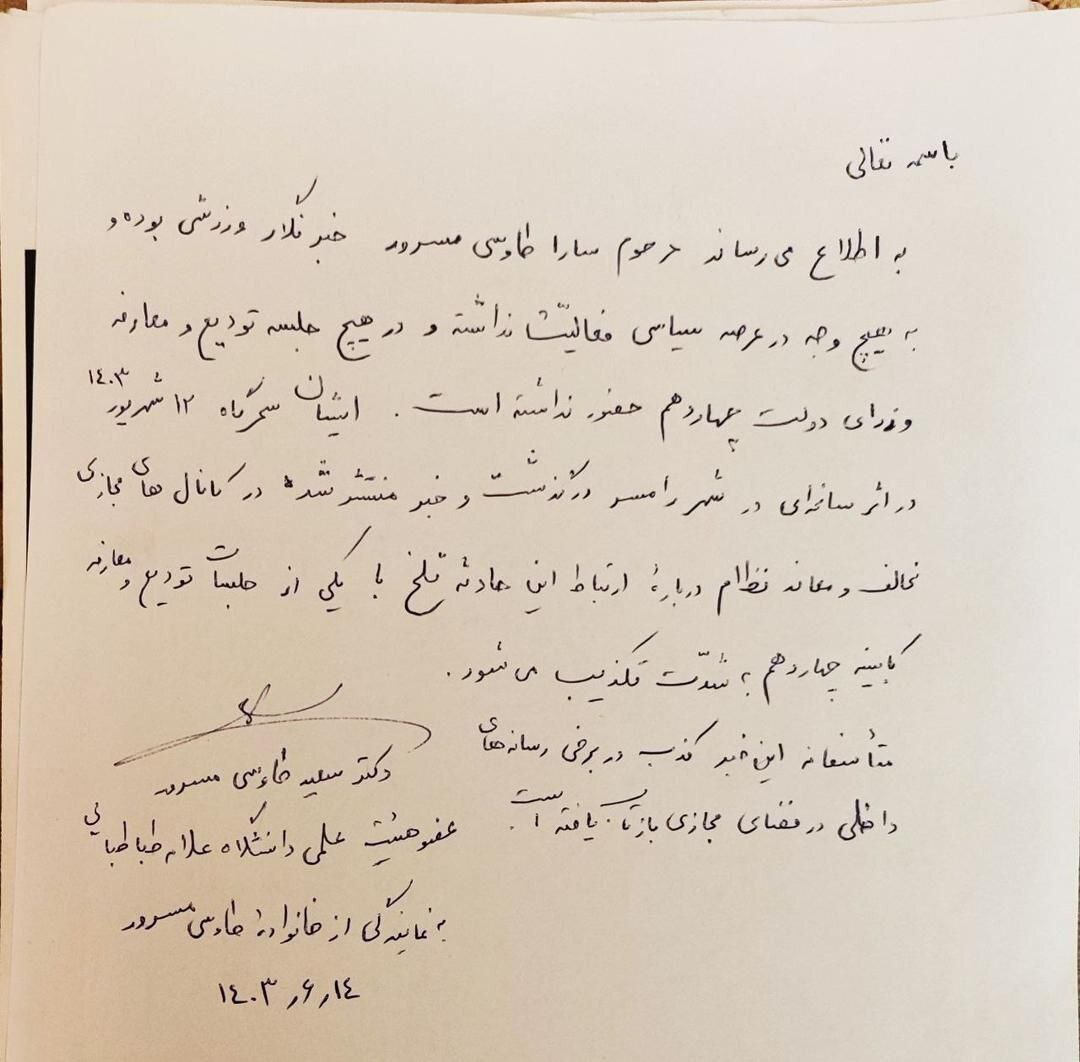 باسمه تعالی
به اطلاع می رساند مرحوم سارا طاوسی مسرور خبرنگار ورزشی بوده و
به هیچ وجه در عرصه سیاسی فعالیتی نداشته و در هیچ جلسه تودیع و معارفه
وزرای دولت چهاردهم حضور نداشته است. ایشان سحرگاه ۱۲ شهریور ۱۴۰۳
در اثر سانحه‌ای در شهر رامسر درگذشت و خبر منتشر شده در کانال های مجازی
مخالف و معاند نظام دربارهٔ ارتباط این حادثه تلخ با یکی از جلسات تودیع و معارفه
کابینه چهاردهم به شدّت تکذیب می شود.
متأسفانه این خبر کذب در برخی رسانه‌های
داخلی در فضای مجازی بازتاب یافته است.
دکتر سعید طاوسی مسرور
عضو هیئت علمی دانشگاه علامه طباطبائی
به نمایندگی از خانوادهٔ طاوسی مسرور
۱۴۰۳٫۶٫۱۴